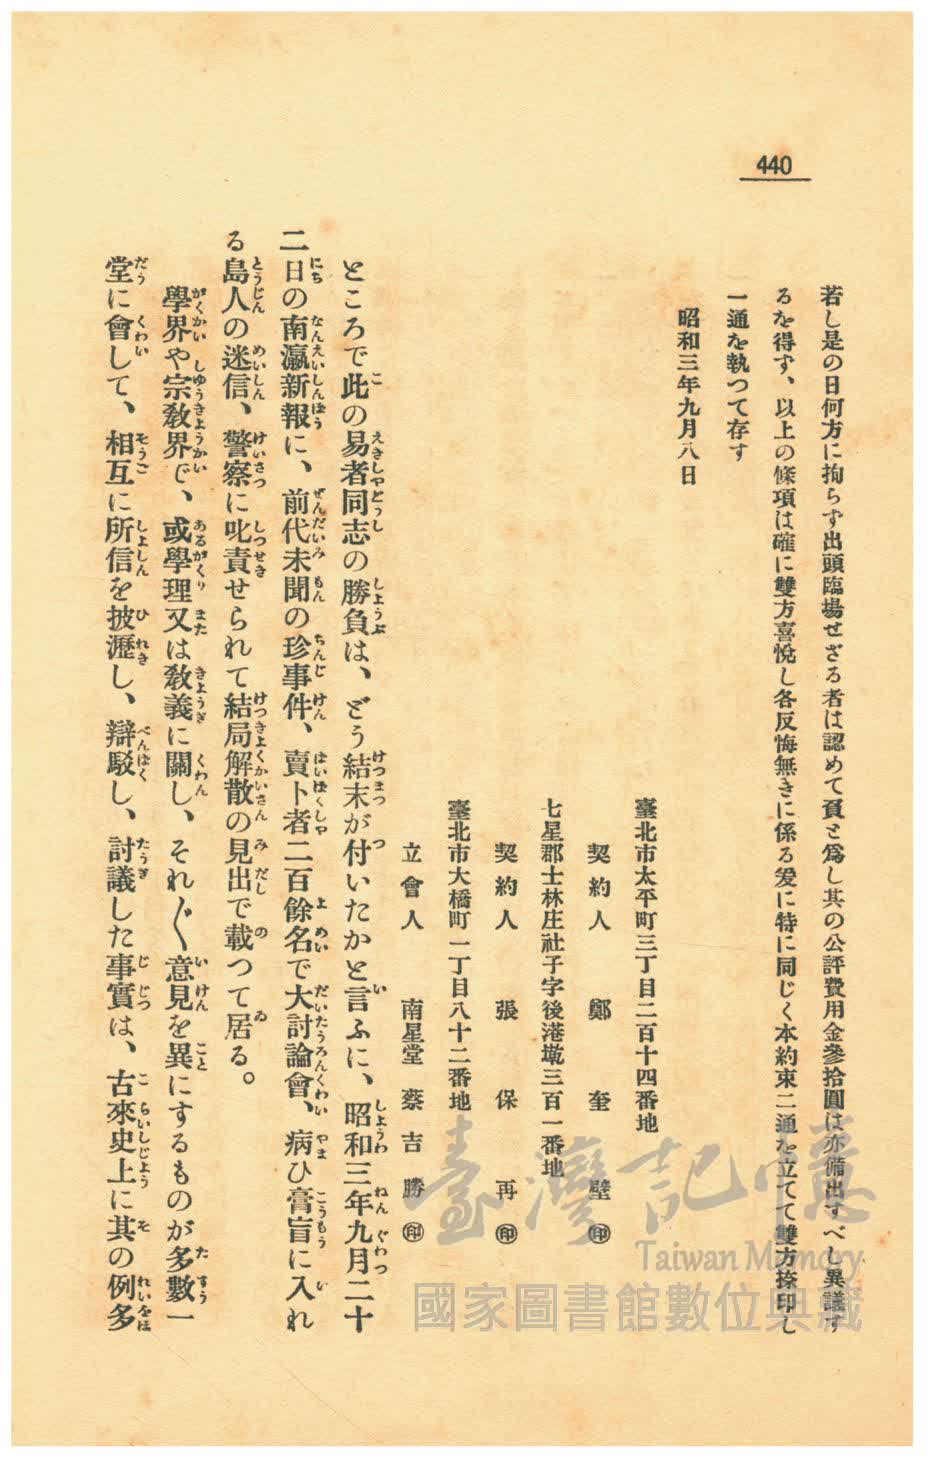 440
若し是の日何方に拘らず出頭臨場せざる者は認めて負と爲し其の公評費用金參拾圓は亦備出すべし異議す
るを得ず、以上の條項は確に雙方喜悅し各反悔無きに係る爰に特に同じく本約束二通を立てて雙方捺印し
一通を執つて存す
昭和三年九月八日
臺北市太平町三丁目二百十四番地
契約人 鄭奎壁㊞
七星郡士林庄社子字後港墘三百一番地
契約人 張保再㊞
臺北市大橋町一丁目八十二番地
立會人 南星堂 蔡吉勝㊞
ところで此の易者同志の勝負は、どう結末が付いたかと言ふに、昭和三年九月二十
二日の南瀛新報に、前代未聞の珍事件、賣卜者二百餘名で大討論會、病ひ膏盲に入れ
る島人の迷信、警察に叱責せられて結局解散の見出で載つて居る。
學界や宗敎界で、或學理又は敎義に關し、それ〲意見を異にするものが多數一
堂に會して、相互に所信を披瀝し、辯駁し、討議した事實は、古來史上に其の例多
臺灣記憶
Taiwan Memory
國家圖書館數位典藏